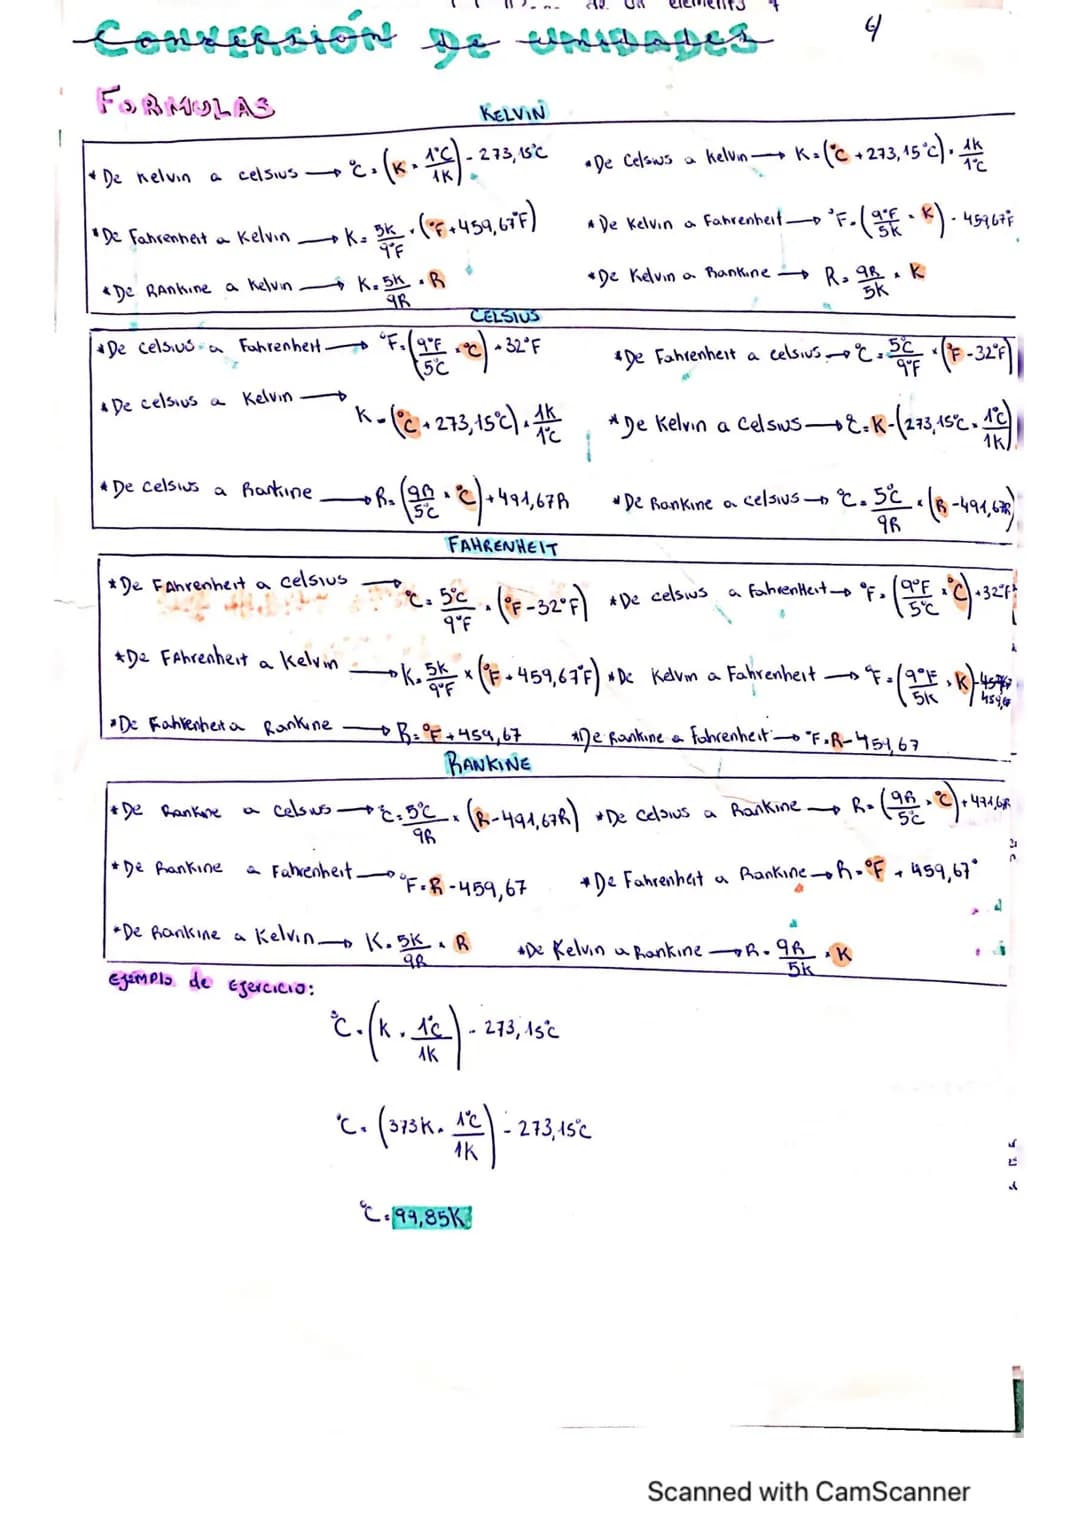 elements
CONVERSIÓN DE UNIDADES
FORMULAS
KELVIN
* De Kelvin a celsius → °C = (K · 1°C/1K) - 273,15°C
* De Celsius a Kelvin → K = (°C + 273,15°C) · 1K/1°C
* De Fahrenheit a Kelvin → K = 5K/9°F · (°F + 459,67°F)
* De Kelvin a Fahrenheit → °F = (9°F/5K · K) - 459,67°F
* De RAnkine a Kelvin → K = 5K/9R · R
* De Kelvin a Rankine → R = 9R/5K · K
CELSIUS
* De celsius a Fahrenheit → °F = (9°F/5°C · °C) + 32°F
* De Fahrenheit a celsius → °C = 5°C/9°F · (°F - 32°F)
* De celsius a Kelvin → K = (°C + 273,15°C) · 1K/1°C
* De Kelvin a Celsius → °C = K - (273,15°C · 1°C/1K)
* De celsius a Rankine → R = (9R/5°C · °C) + 491,67R
* De Rankine a celsius → °C = 5°C/9R · (R - 491,67R)
FAHRENHEIT
* De FAhrenheit a celsius → °C = 5°C/9°F · (°F - 32°F)
* De celsius a FahrenHeit → °F = (9°F/5°C · °C) + 32°F
* De FAhrenheit a Kelvin → K = 5K/9°F × (°F + 459,67°F)
* De Kelvin a Fahrenheit → °F = (9°F/5K · K) - 459,67
* De Fahrenheit a Rankine → R = °F + 459,67
* De Rankine a Fahrenheit → °F = R - 451,67
RANKINE
* De Rankine a Celsius → °C = 5°C/9R · (R - 491,67R)
* De Celsius a Rankine → R = (9R/5°C · °C) + 491,67R
* De Rankine a Fahrenheit → °F = R - 459,67
* De Fahrenheit a Rankine → R = °F + 459,67°
* De Rankine a Kelvin → K = 5K/9R · R
* De Kelvin a Rankine → R = 9R/5K · K
EJEMPlo de EJERCICIO:
°C = (K · 1°C/1K) - 273,15°C
°C = (373K · 1°C/1K) - 273,15°C
°C = 99,85K
Scanned with CamScanner